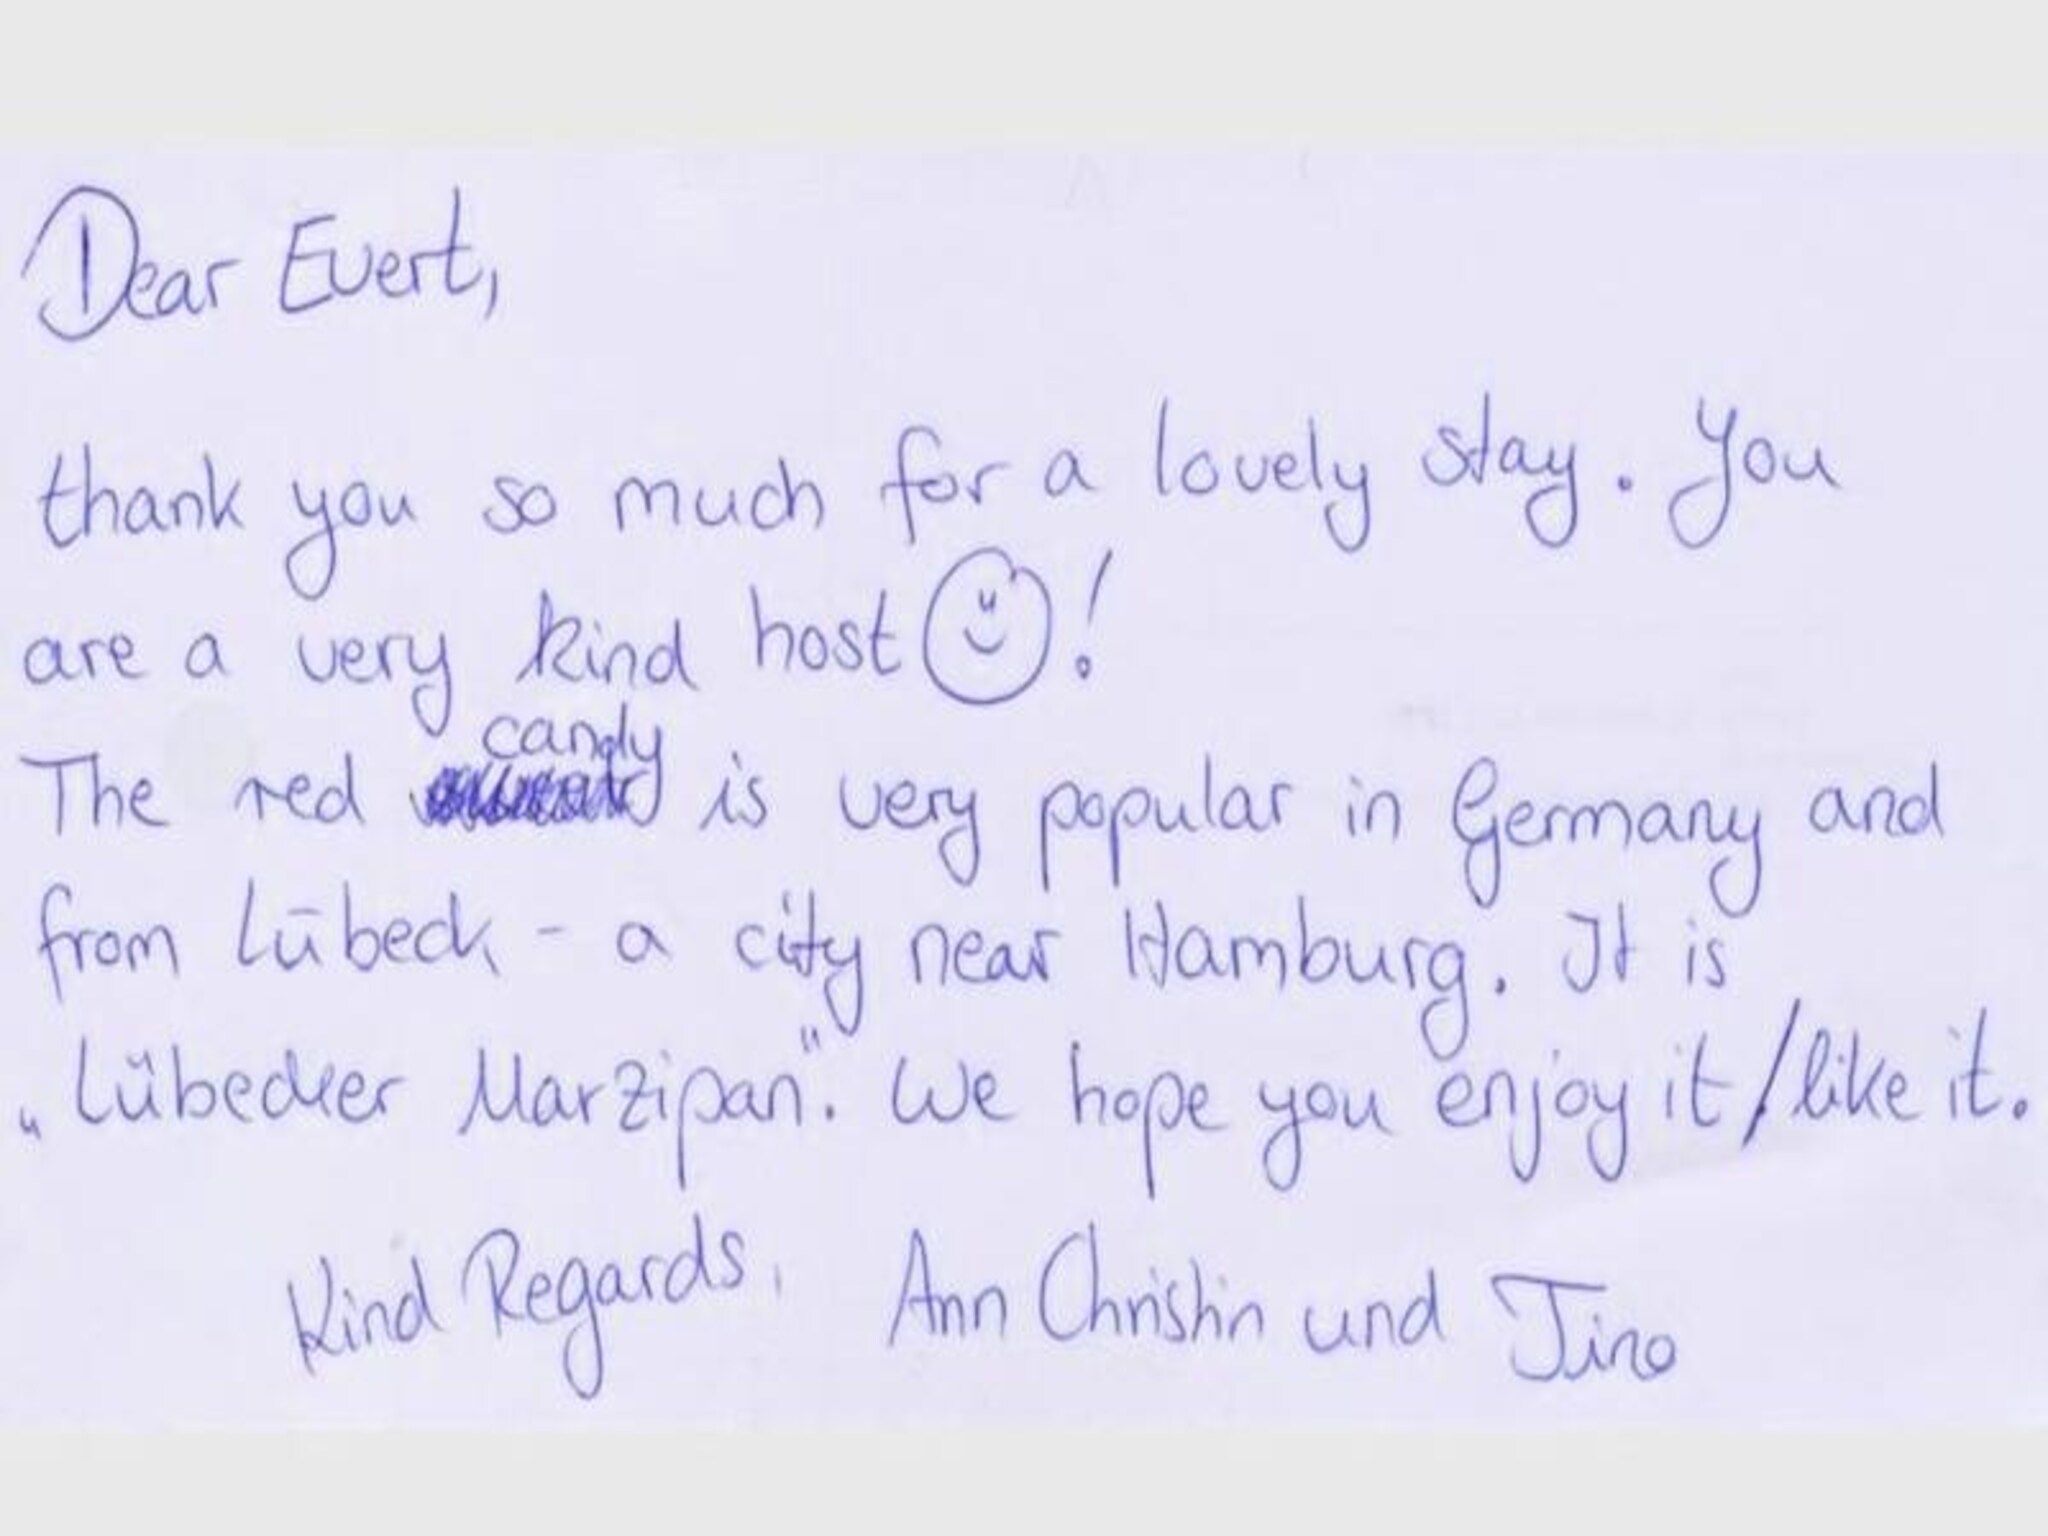 Dear Evert,
thank you so much for a lovely stay. You
are a very kind host ☺!
The red candy is very popular in Germany and
from Lübeck - a city near Hamburg. It is
„Lübecker Marzipan". We hope you enjoy it/like it.
Kind Regards, Ann Christin und Tino